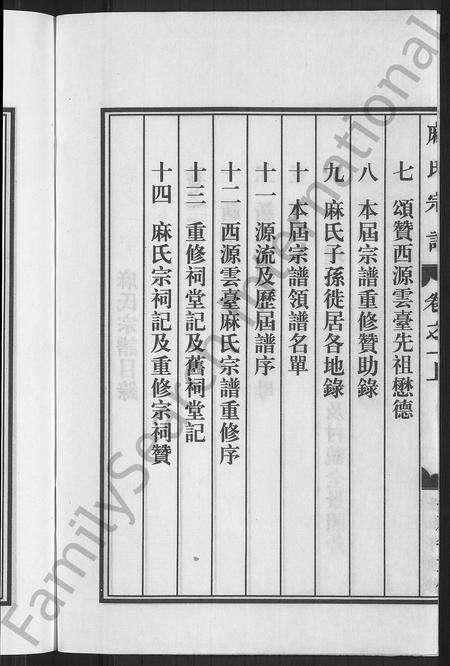 麻氏宗譜 卷之一上
七 頌贊西源雲臺先祖懋德
八 本屆宗譜重修贊助錄
九 麻氏子孫徙居各地錄
十 本屆宗譜領譜名單
十一 源流及歷屆譜序
十二 西源雲臺麻氏宗譜重修序
十三 重修祠堂記及舊祠堂記
十四 麻氏宗祠記及重修宗祠贊
麻氏宗譜目錄
FamilySearch International